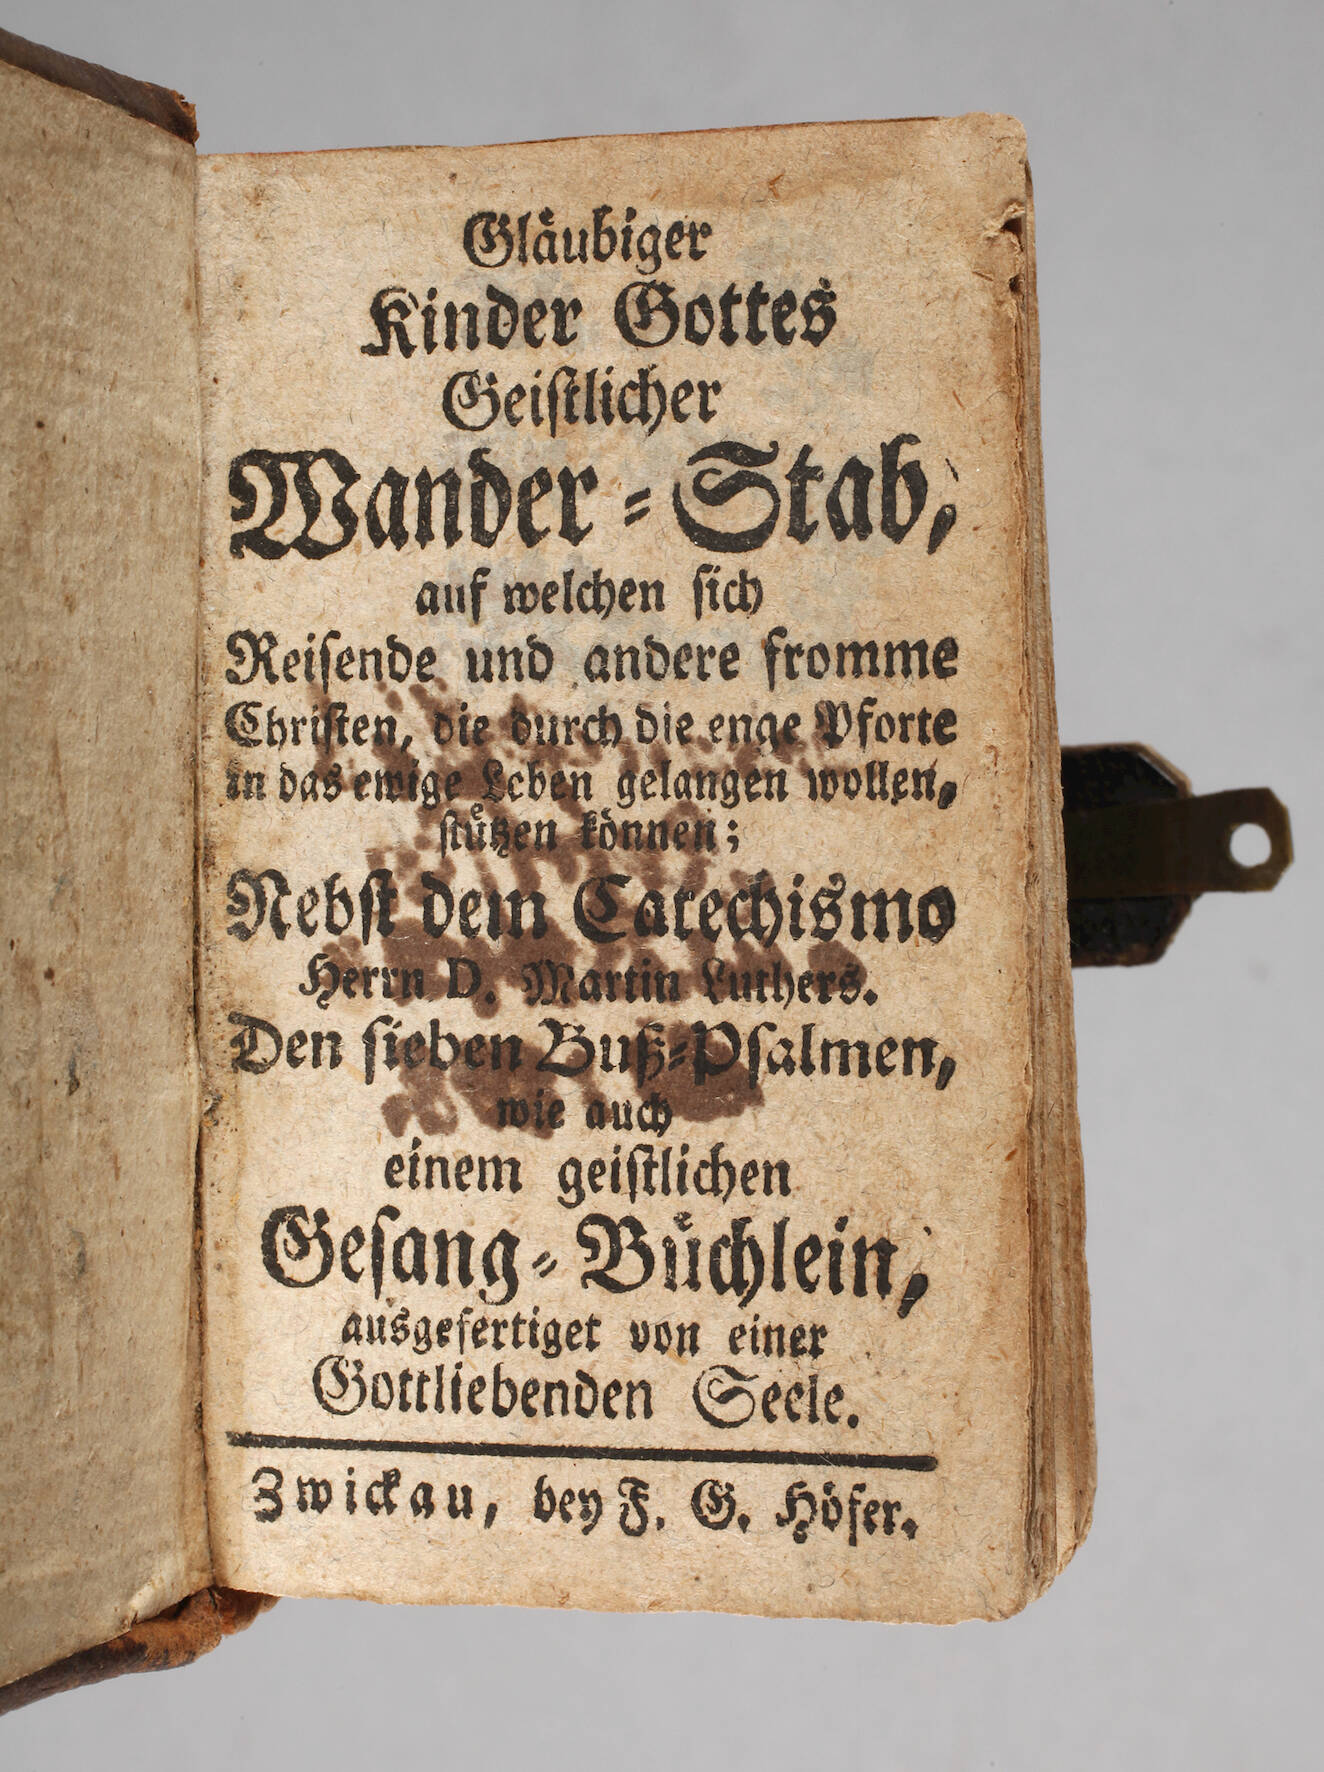 Gläubiger
Kinder Gottes
Geistlicher
Wander-Stab,
auf welchen sich
Reisende und andere fromme
Christen, die durch die enge Pforte
in das ewige Leben gelangen wollen,
stützen können;
Nebst dem Catechismo
Herrn D. Martin Luthers.
Den sieben Buß-Psalmen,
wie auch
einem geistlichen
Gesang-Büchlein,
ausgefertiget von einer
Gottliebenden Seele.
Zwickau, bey F. G. Höfer.